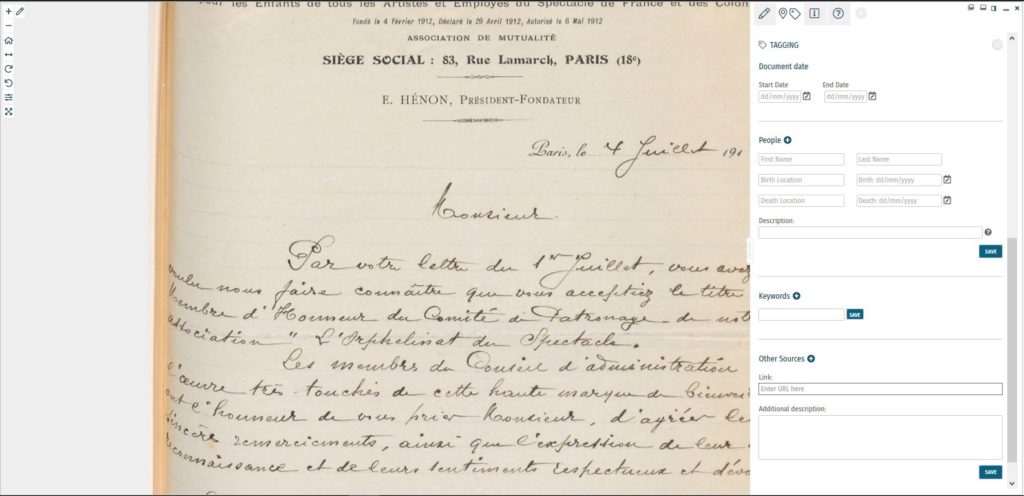 Pour les Enfants de tous les Artistes et Employés du Spectacle de France et des Colon
Fondé le 4 Février 1912, Déclaré le 29 Avril 1912, Autorisé le 6 Mai 1912
ASSOCIATION DE MUTUALITÉ
SIÈGE SOCIAL : 83, Rue Lamarck, PARIS (18e)
E. HÉNON, PRÉSIDENT-FONDATEUR
Paris, le 4 Juillet 191
Monsieur
Par votre lettre du 1er Juillet, vous avez
voulu nous faire connaître que vous acceptiez le titre
Membre d'Honneur du Comité de Patronage de not
association "L'Orphelinat du Spectacle.
Les membres du Conseil d'administration
l'œuvre très touchés de cette haute marque de bienvei
ont l'honneur de vous prier Monsieur, d'agréer le
sincère remerciements, ainsi que l'expression de leur
reconnaissance et de leurs sentiments respectueux et dévo
TAGGING
Document date
Start Date End Date
dd/mm/yyyy dd/mm/yyyy
People
First Name Last Name
Birth Location Birth: dd/mm/yyyy
Death Location Death: dd/mm/yyyy
Description:
SAVE
Keywords
SAVE
Other Sources
Link:
Enter URL here
Additional description:
SAVE